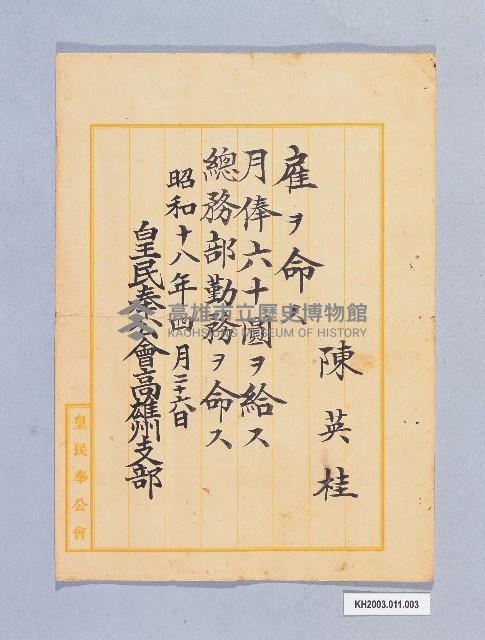 陳英桂
雇ヲ命ス
月俸六十圓ヲ給ス
總務部勤務ヲ命ス
昭和十八年四月二十六日
皇民奉公會高雄州支部
皇民奉公會
高雄市立歷史博物館
KAOHSIUNG MUSEUM OF HISTORY
KH2003.011.003